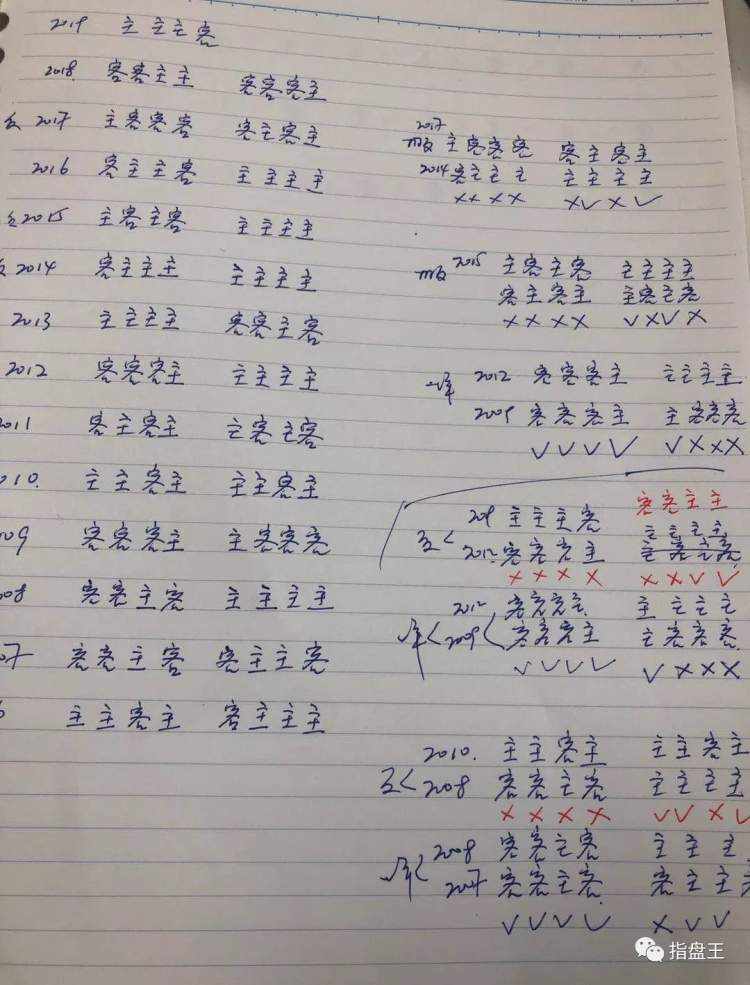 2019 主主主客
2018. 客客主主 客客客主
2017 主客客客 客主客主
2016 客主主客 主主主主
2015 主客主客 主主主主
2014 客主主主 主主主主
2013 主主主主 客客主客
2012 客客客主 主主主主
2011 客主客主 主客主客
2010. 主主客主 主主客主
009 客客客主 主客客客
008 客客主客 主主主主
07 客客主客 客主主客
主主客主 客主主主
2017
主客客客 客主客主
2014 客主主主 主主主主
×××× ×√×√
2015 主客主客 主主主主
客主客主 主客主客
×××× √×√×
2012 客客客主 主主主主
2009 客客客主 主客客客
√√√√ √×××
客客主主
主主主客 主主主主
2012. 客客客主
×××× ××√√
2012 客客客主 主主主主
2009 客客客主 主客客客
√√√√ √×××
2010. 主主客主 主主客主
2008 客客主客 主主主主
×××× √√×√
2008 客客主客 主主主
2007 客客主客 客主主
√√√√ ×√√
指盘王